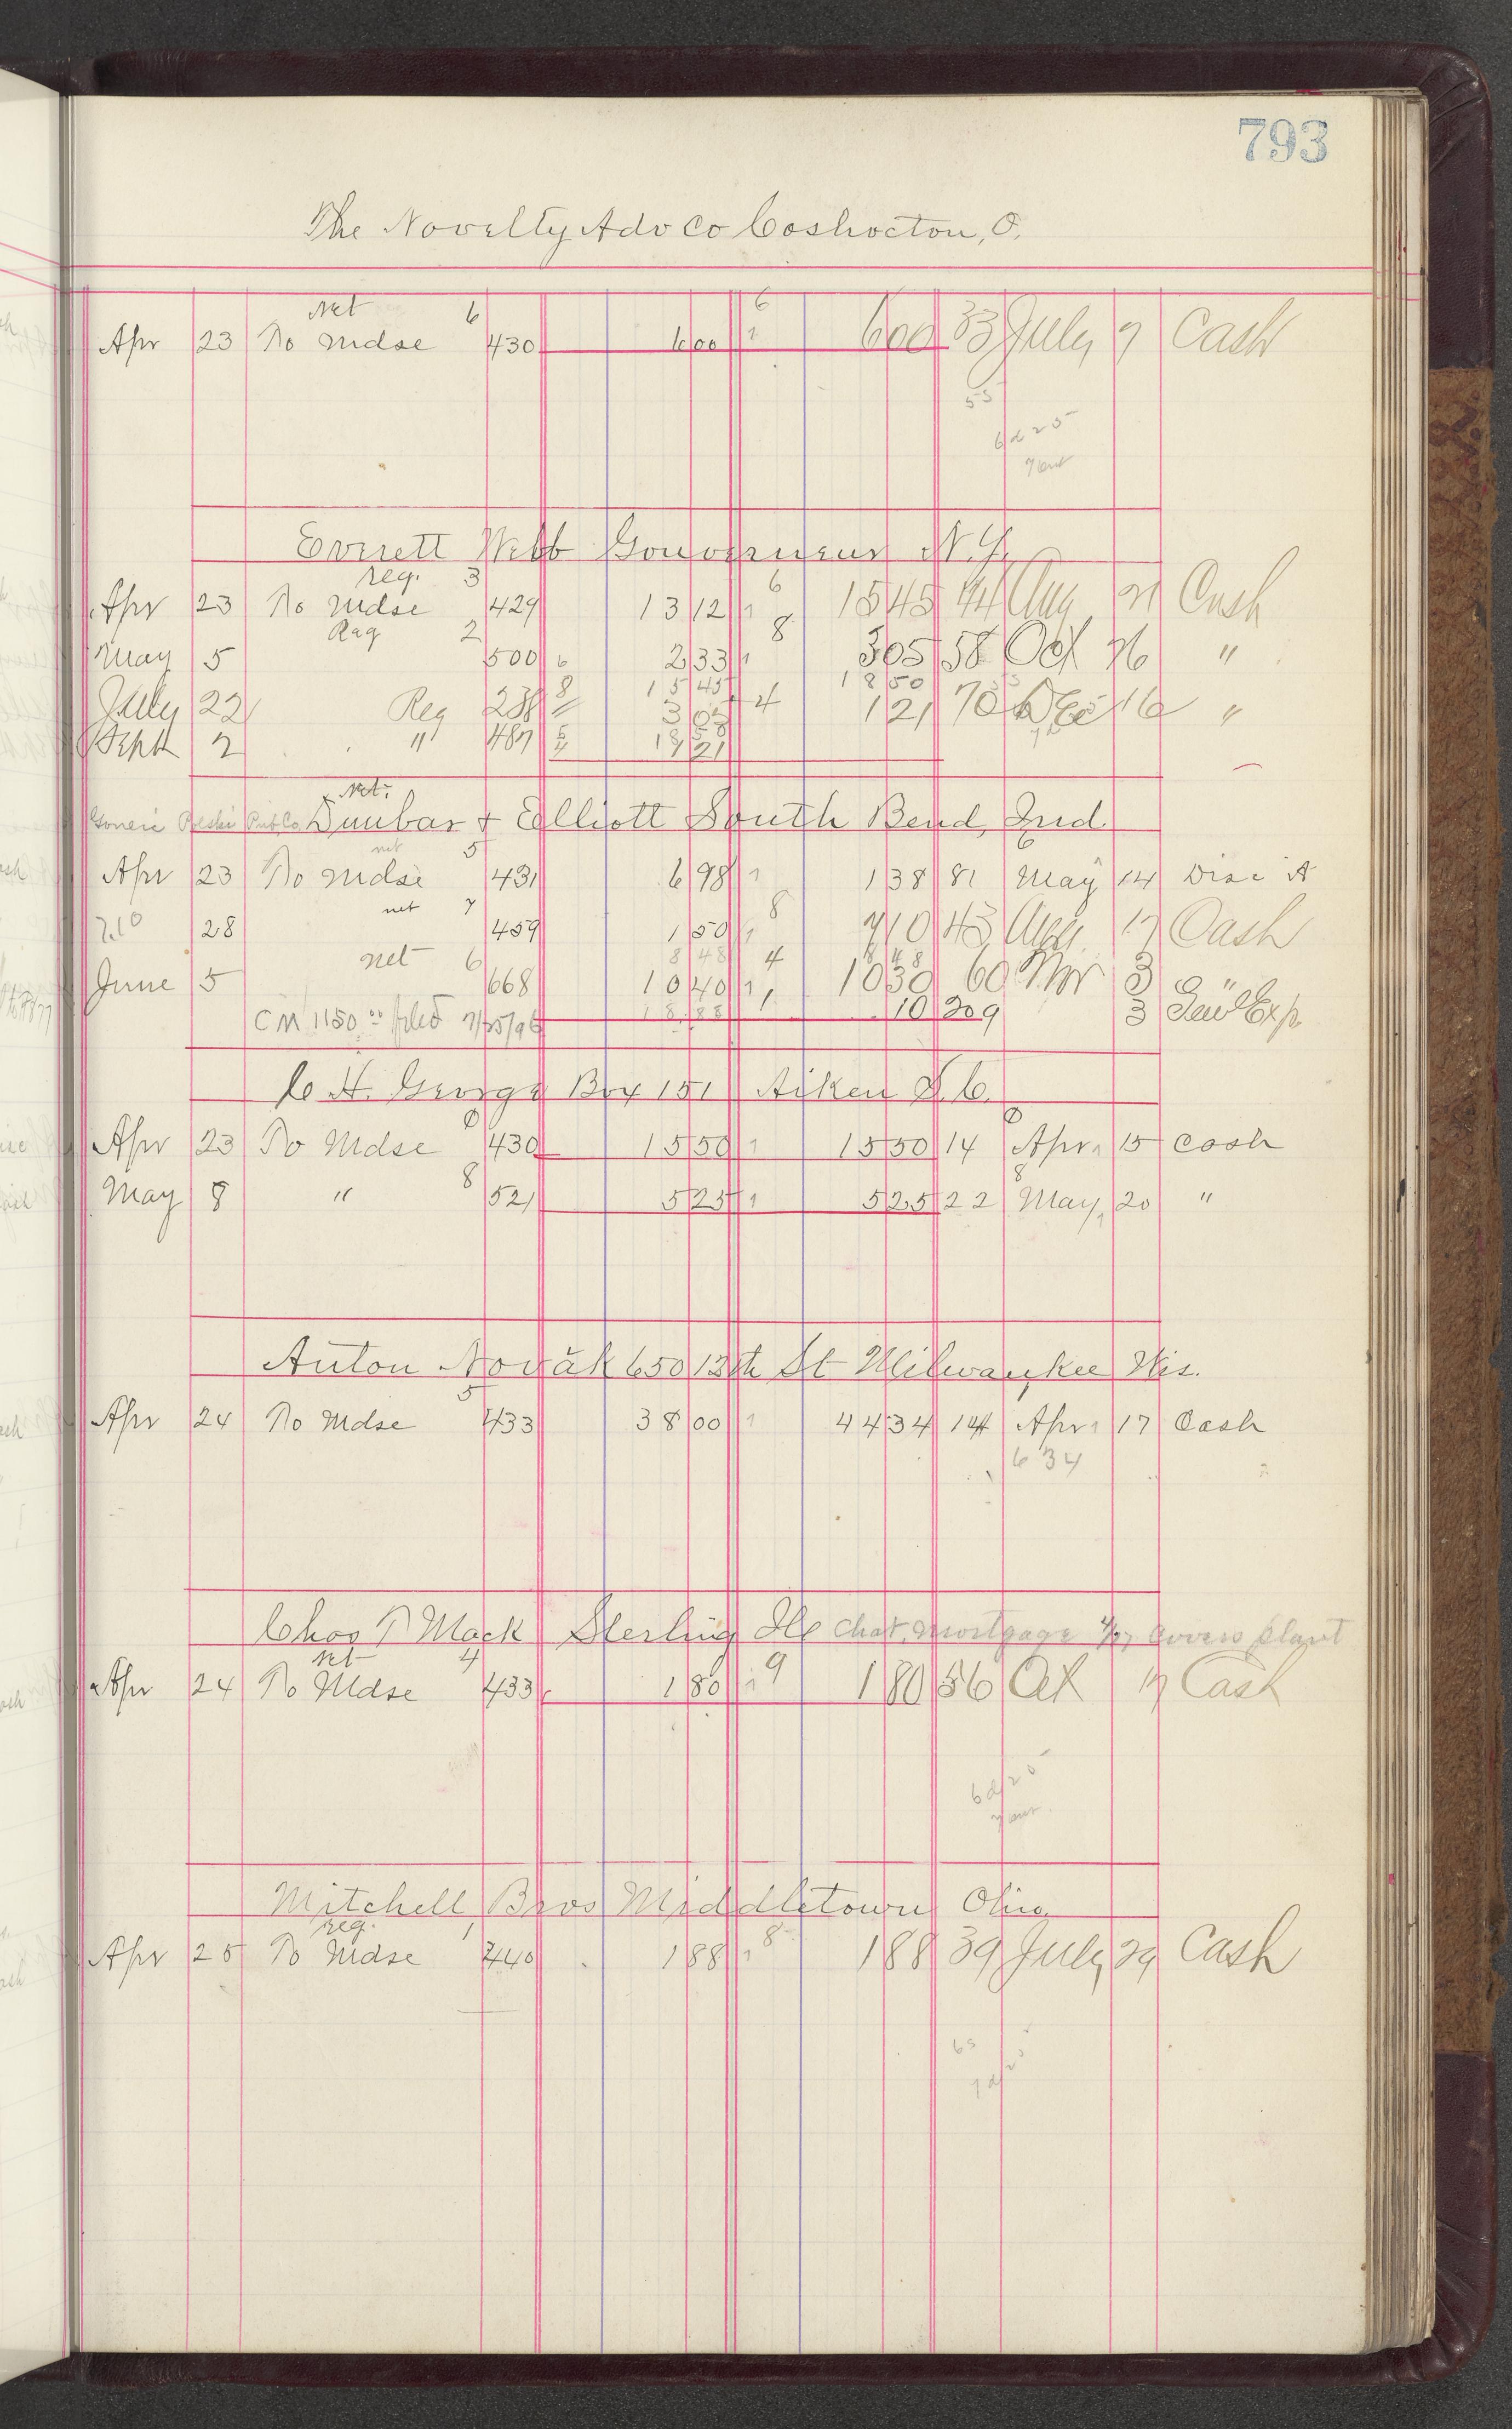 793
The Novelty Adv Co Coshocton, O.
Net 6
Apr 23 To Mdse 430 6 00 1 6 600 33 July 9 Cash
55
6d25
Everett Webb Gouverneur N.Y.
reg. 3
Apr 23 To Mdse 429 13 12 1 6 1545 44 Aug 21 Cash
Reg 2
May 5 500 6 2 33 1 8 305 58 Oct 26 "
15 45 18 50
July 22 Reg 238 8 3 05 4 1 21 70 Dec 16 "
Sept 2 " 487
19 21
Net.
Pub Co. Dunbar & Elliott South Bend, Ind.
net 5 6
Apr 23 To Mdse 431 6 98 1 1 38 81 May 14 Disc A
net 7 8
28 459 1 50 1 7 10 43 Aug. 17 Cash
8 48 4 8 48
net 6
June 5 668 10 40 1 10 30 60 Nov 3 "
CM 1150 filed 7/25/96 18 88 1 10 209 3 Exp.
C. H. George Box 151 Aiken S.C.
8 8
Apr 23 To Mdse 430 15 50 1 15 50 14 Apr. 15 Cash
8 8
May 8 " 521 5 25 1 5 25 22 May, 20 "
Anton Novák 650 13th St Milwaukee Wis.
5
Apr 24 To Mdse 433 38 00 1 44 34 14 Apr 17 Cash
6 34
Chas T Mack Sterling Ill Chat. Mortgage covers plant
net 4
Apr 24 To Mdse 433 1 80 1 9 1 80 56 Oct 17 Cash
6d25
Mitchell Bros Middletown Ohio.
reg. 1
Apr 25 To Mdse 440 1 88 1 8 1 88 39 July 29 Cash